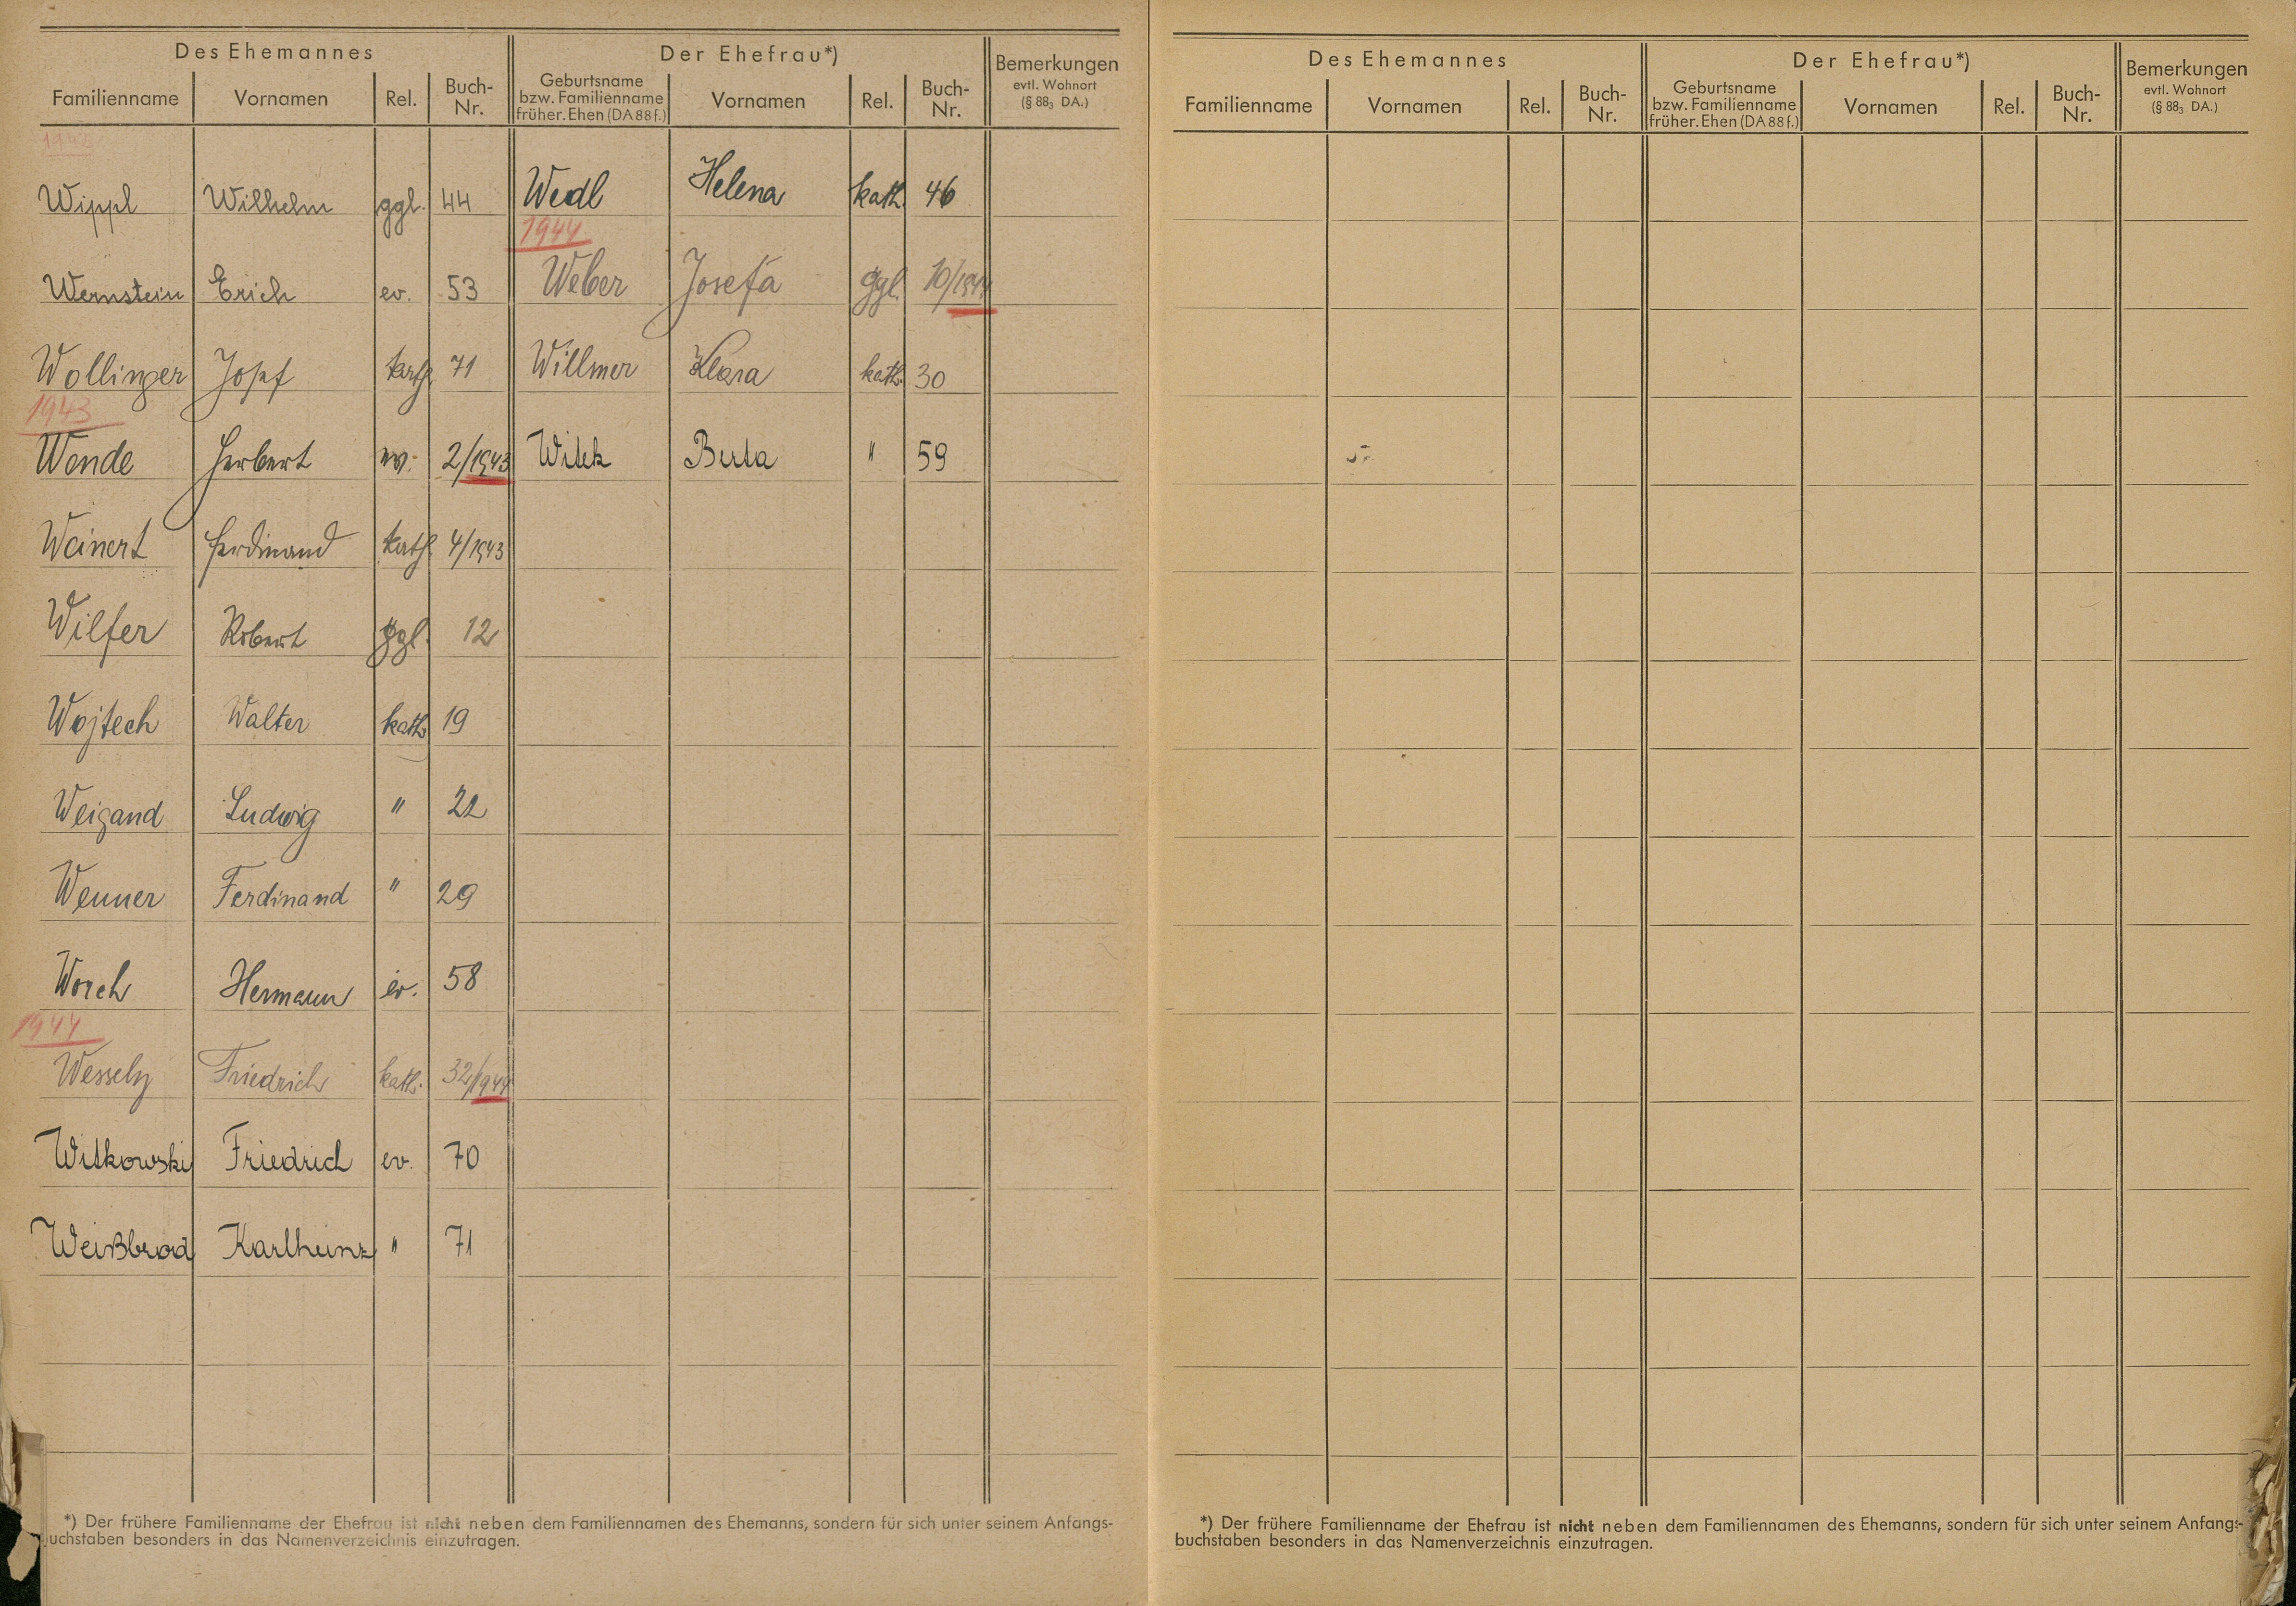 Des Ehemannes Der Ehefrau*) Bemerkungen evtl. Wohnort (§ 88₃ DA.)
Familienname Vornamen Rel. Buch-Nr. Geburtsname bzw. Familienname früher. Ehen (DA 88 f.) Vornamen Rel. Buch-Nr.
Wippl Wilhelm ggl. 44 Wedl Helena kath. 46
1944
Wernstein Erich ev. 53 Weber Josefa ggl. 10/1944
Wollinger Josef kath. 71 Willmer Klara kath. 30
1943
Wende Herbert ev. 2/1943 Witek Berta " 59
Weinert Ferdinand kath. 4/1943
Wilfer Robert ggl. 12
Wojtech Walter kath. 19
Weigand Ludwig " 22
Wenner Ferdinand " 29
Worch Hermann ev. 58
1944
Wessely Friedrich kath. 32/1944
Witkowski Friedrich ev. 70
Weißbrod Karlheinz " 71
*) Der frühere Familienname der Ehefrau ist nicht neben dem Familiennamen des Ehemanns, sondern für sich unter seinem Anfangs-
buchstaben besonders in das Namenverzeichnis einzutragen.
Des Ehemannes Der Ehefrau*) Bemerkungen evtl. Wohnort (§ 88₃ DA.)
Familienname Vornamen Rel. Buch-Nr. Geburtsname bzw. Familienname früher. Ehen (DA 88 f.) Vornamen Rel. Buch-Nr.
*) Der frühere Familienname der Ehefrau ist nicht neben dem Familiennamen des Ehemanns, sondern für sich unter seinem Anfangs-
buchstaben besonders in das Namenverzeichnis einzutragen.